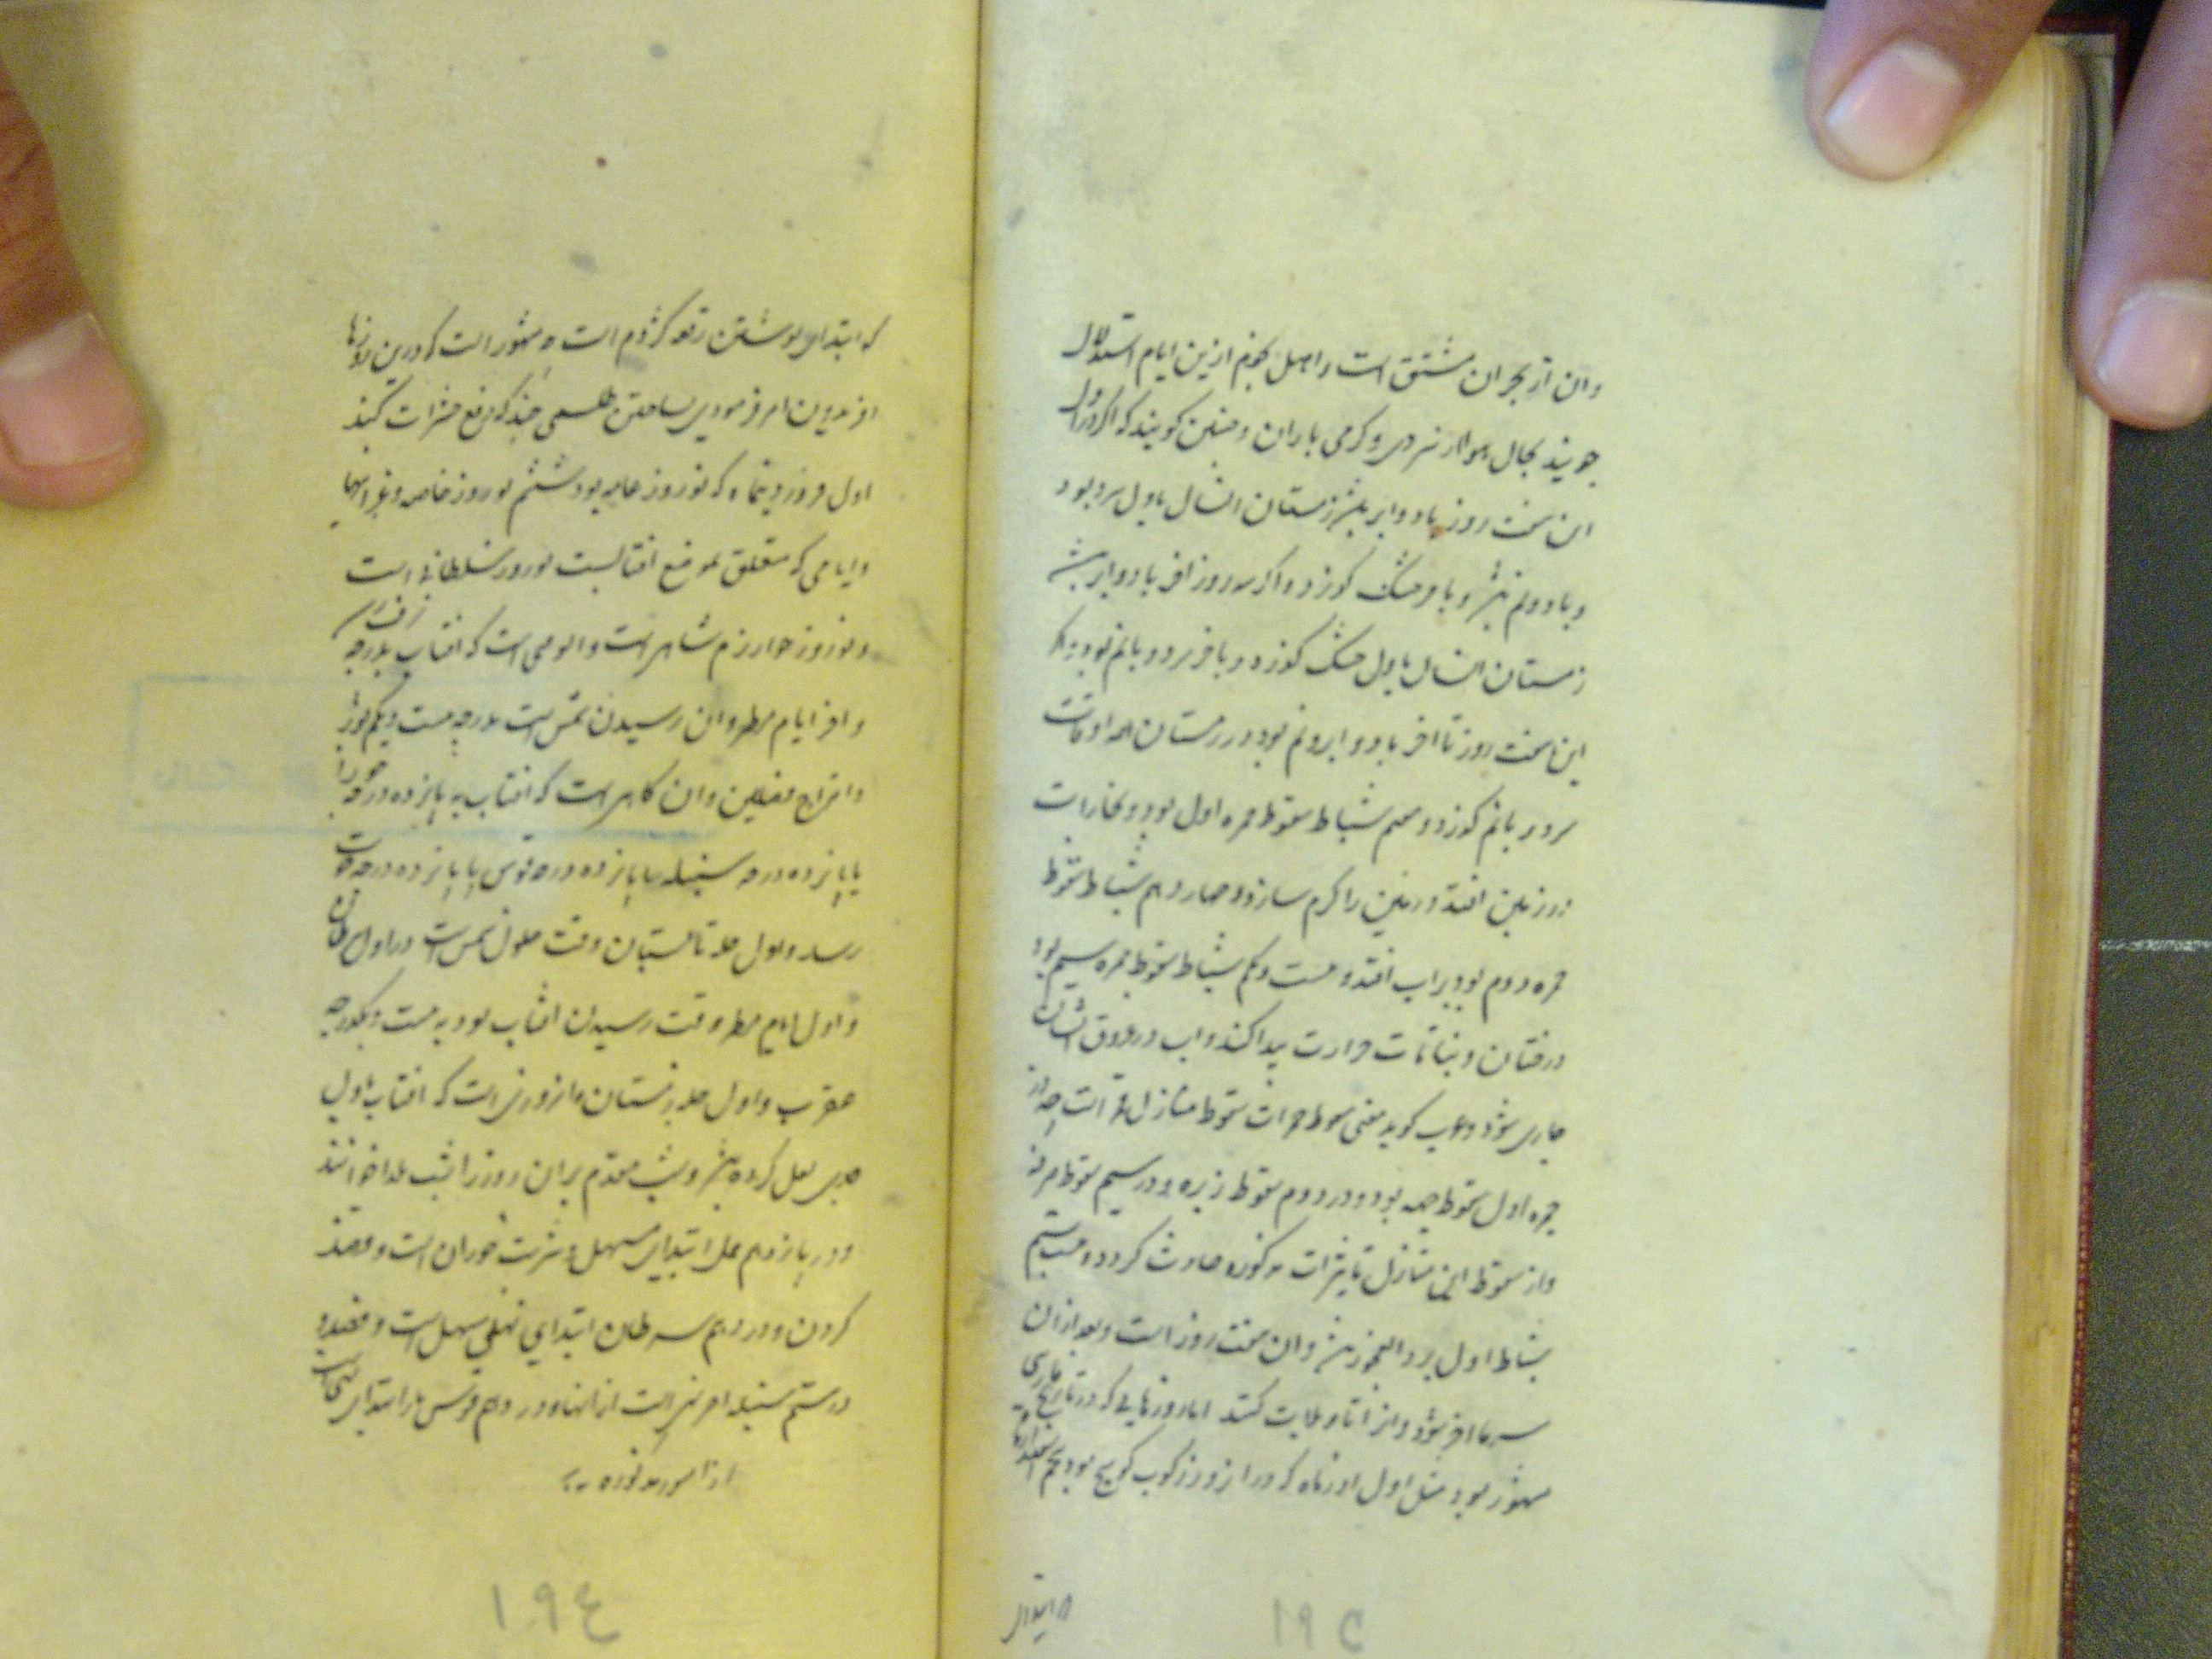 وان از بحران مشتق است و اهل نجوم ازین ایام استدلال
جویند بحال هوا از سردی و گرمی باران و چنین گویند که اگر در اول
این هفت روز باد و ابر باشد زمستان انسال باول سرد بود
و باد و نم باشد و باخر خشک گذرد و اگر سه روز اخر باد و ابر باشد
زمستان انسال باول خشک گذرد و باخر سرد و بانم بود و اگر
این هفت روز تا اخر باد و ابر و نم بود در زمستان همه اوقات
سرد و بانم گذرد و هفتم شباط سقوط جمره اول بود و بخارات
در زمین افتد و زمین را گرم سازد و چهاردهم شباط سقوط
جمره دوم بود بر اب افتد و بیست و یکم شباط سقوط جمره سیم بود
درختان و نباتات حرارت پیدا کند و اب در عروق ایشان
جاری شود و عرب گوید معنی سقوط جمرات سقوط منازل قمر است چه در
جمره اول سقوط جبهه بود و در دوم سقوط زبره و در سیم سقوط صرفه
و از سقوط این منازل تاثیرات مذکوره حادث گردد و بیست و ششم
شباط اول برد العجوز باشد و ان هفت روز است و بعد از ان
سرما اخر شود و از انار ولایت کنند اما روزهایی که در تاریخ فارسی
مشهور بود مثل اول اذرماه که در ان روز رکوب کوسج بود پنجم اسفندارمذ ماه
و ابتدای
۱۹۵
که ابتدای نوشتن رقعه کژدم است و مشهور است که درین روزها
افریدون امر فرمودی بساختن طلسمی چند که دفع حشرات کنند
اول فروردینماه که نوروز عامه بود ششم نوروز خاصه و غیر اینها
و ایامی که متعلق بموضع افتابست نوروز سلطانی است
و نوروز خوارزم شاهی است و ان وقتی است که افتاب بدرجه
و اخر ایام مطر و ان رسیدن شمس است بدرجه بیست و یکم ثور
و امزاج فصلین و ان گاهی است که افتاب به پانزده درجه جوزا
یا پانزده درجه سنبله یا پانزده درجه قوس یا پانزده درجه حوت
رسد و اول چله تابستان وقت حلول شمس است در اول سرطان
و اول ایام مطر وقت رسیدن افتاب بود به بیست و یکدرجه
عقرب و اول چله زمستان و ان روزی است که افتاب باول
جدی نقل کرده باشد و شب مقدم بر ان روز را شب یلدا خوانند
و در پانزدهم حمل ابتدای مسهل و شربت خوردن است و فصد
کردن و در دهم سرطان ابتدای نهی مسهل است و فصد و
در ستم سنبله اخر نهی است از انها و در دهم قوس هم ابتدای اجتناب
از امور مذکوره
۱۹٤